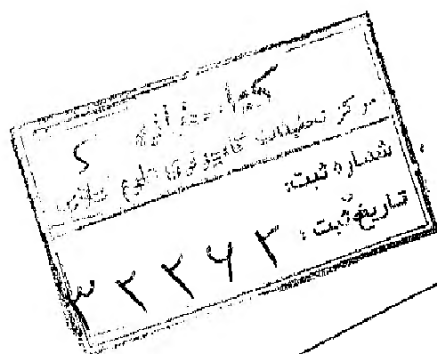 کتابخانه
مرکز تحقیقات کامپیوتری علوم اسلامی
شماره ثبت:
تاریخ ثبت:
۳۲۲۶۲